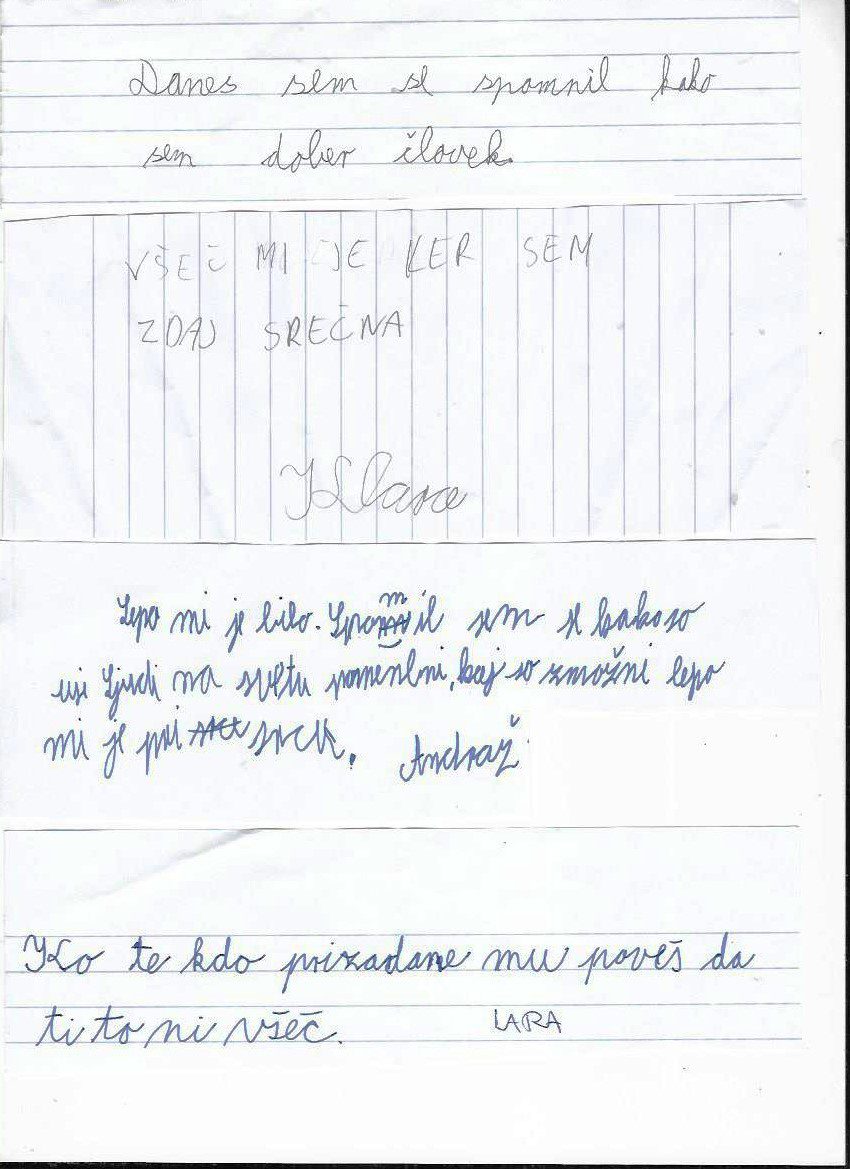 Danes sem se spomnil kako
sem dober človek.
VŠEČ MI JE KER SEM
ZDAJ SREČNA
Klara
Lepo mi je bilo. Spomnil sem se kako so
usi ljudi na svetu pomenbni, kaj so zmožni lepo
mi je pri srcu.
Andraž
Ko te kdo prizadane mu poveš da
ti to ni všeč.
LARA